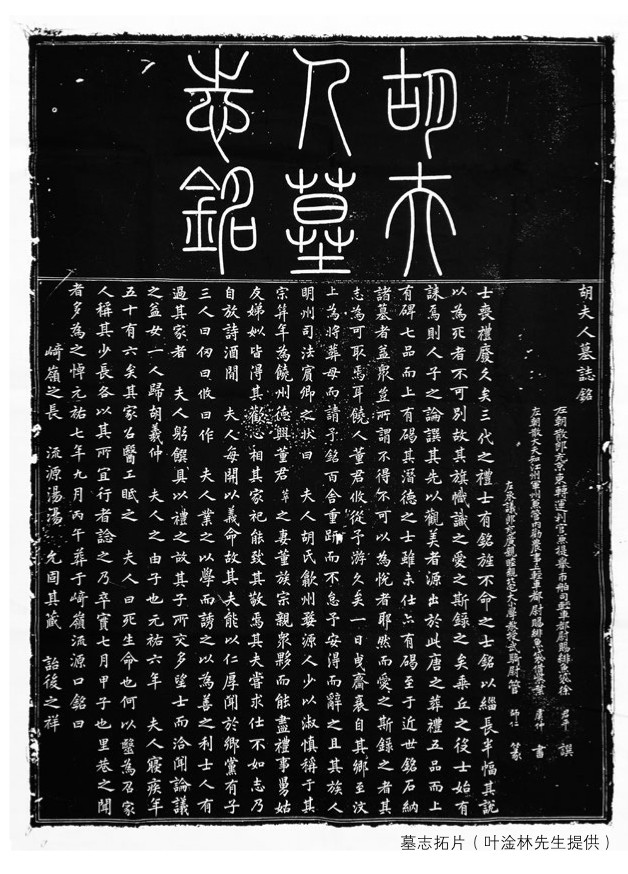 胡夫
人墓
志銘
胡夫人墓誌銘
左朝散郎充京東轉運判官兼提舉市舶司輕車都尉賜緋魚袋徐君平譔
左朝散大夫知江州軍州兼管內勸農事上輕車都尉賜緋魚袋黃慶基書
左承議郎充廣親睦親宅大小學教授武騎尉管師仁篆
士喪禮廢久矣三代之禮士有銘旌不命之士銘以緇長半幅其說
以為死者不可別故其旗幟識之愛之斯錄之矣乘丘之役士始有
誄焉則人子之論譔其先以觀美者源出於此唐之葬禮五品而上
有碑七品而上有碣其潛德之士雖未仕亦有碣至于近世銘石納
諸墓者益衆豈所謂不得不可以為悅者耶然而愛之斯錄之者其
志為可取焉耳饒人董君攸從予游久矣一日曳齊衰自其鄉至汶
上為將葬母而請予銘百舍重趼而不怠予安得而辭之且其族人
明州司法賓卿之狀曰夫人胡氏歙州婺源人少以淑慎稱于其
宗笄年為饒州德興董君之妻董族宗親衆夥而能盡禮事舅姑
友娣姒皆得其歡心相其家祀能致其敬焉其夫嘗求仕不如志乃
自放詩酒間夫人每開以義命故其夫能以仁厚聞於鄉黨有子
三人曰仞曰攸曰作夫人業之以學而誘之以為善之利士人有
過其家者夫人躬饌具以禮之故其子所交多望士而洽聞論議
之益女一人歸胡義仲夫人之由子也元祐六年夫人寢疾年
五十有六矣其家召醫工眡之夫人曰死生命也何以醫為召家
人稱其少長各以其所宜行者諭之乃卒實七月甲子也里巷之聞
者多為之悼元祐七年九月丙午葬于崎嶺流源口銘曰
崎嶺之長流源湯湯允固其藏詒後之祥
墓志拓片（叶淦林先生提供）